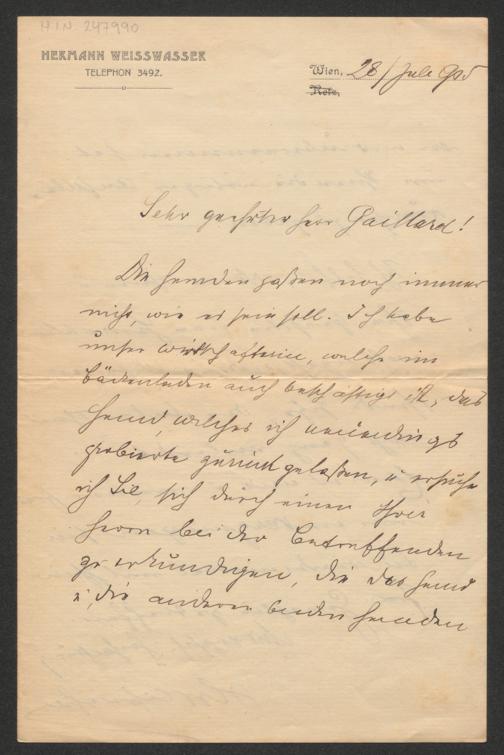 H.I.N. 247990
HERMANN WEISSWASSER
TELEPHON 3492.
Wien, 28/Juli 905
Retz,
Sehr geehrter Herr Gaillard!
Die Hemden paßen noch immer
nicht, wie es sein soll. Ich habe
unser Wirtschafterin, welche im
Bäckenladen auch beschäftigt ist, das
Hemd, welches ich neuerdings
probierte zurück gelaßen, u ersuche
ich Sie, sich durch einen Ihrer
Herrn bei der Betreffenden
zu erkundigen, die das Hemd
u. die anderen beiden Hemden